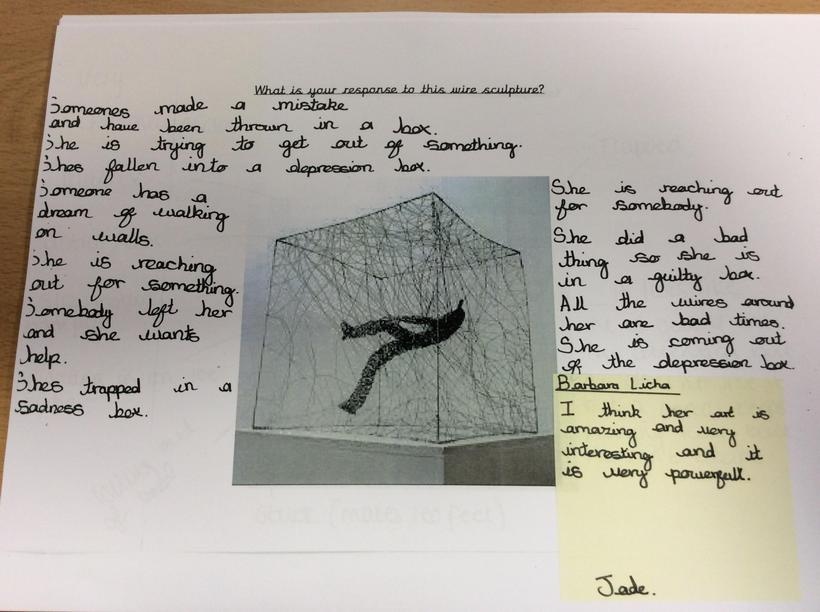 What is your response to this wire sculpture?
Someones made a mistake
and have been thrown in a box.
She is trying to get out of something.
Shes fallen into a depression box.
Someone has a
dream of walking
on walls.
She is reaching
out for something.
Somebody left her
and she wants
help.
Shes trapped in a
sadness box.
She is reaching out
for somebody.
She did a bad
thing so she is
in a guilty box.
All the wires around
her are bad times.
She is coming out
of the depression box.
Barbara Licha
I think her art is
amazing and very
interesting and it
is very powerfull.
Jade.